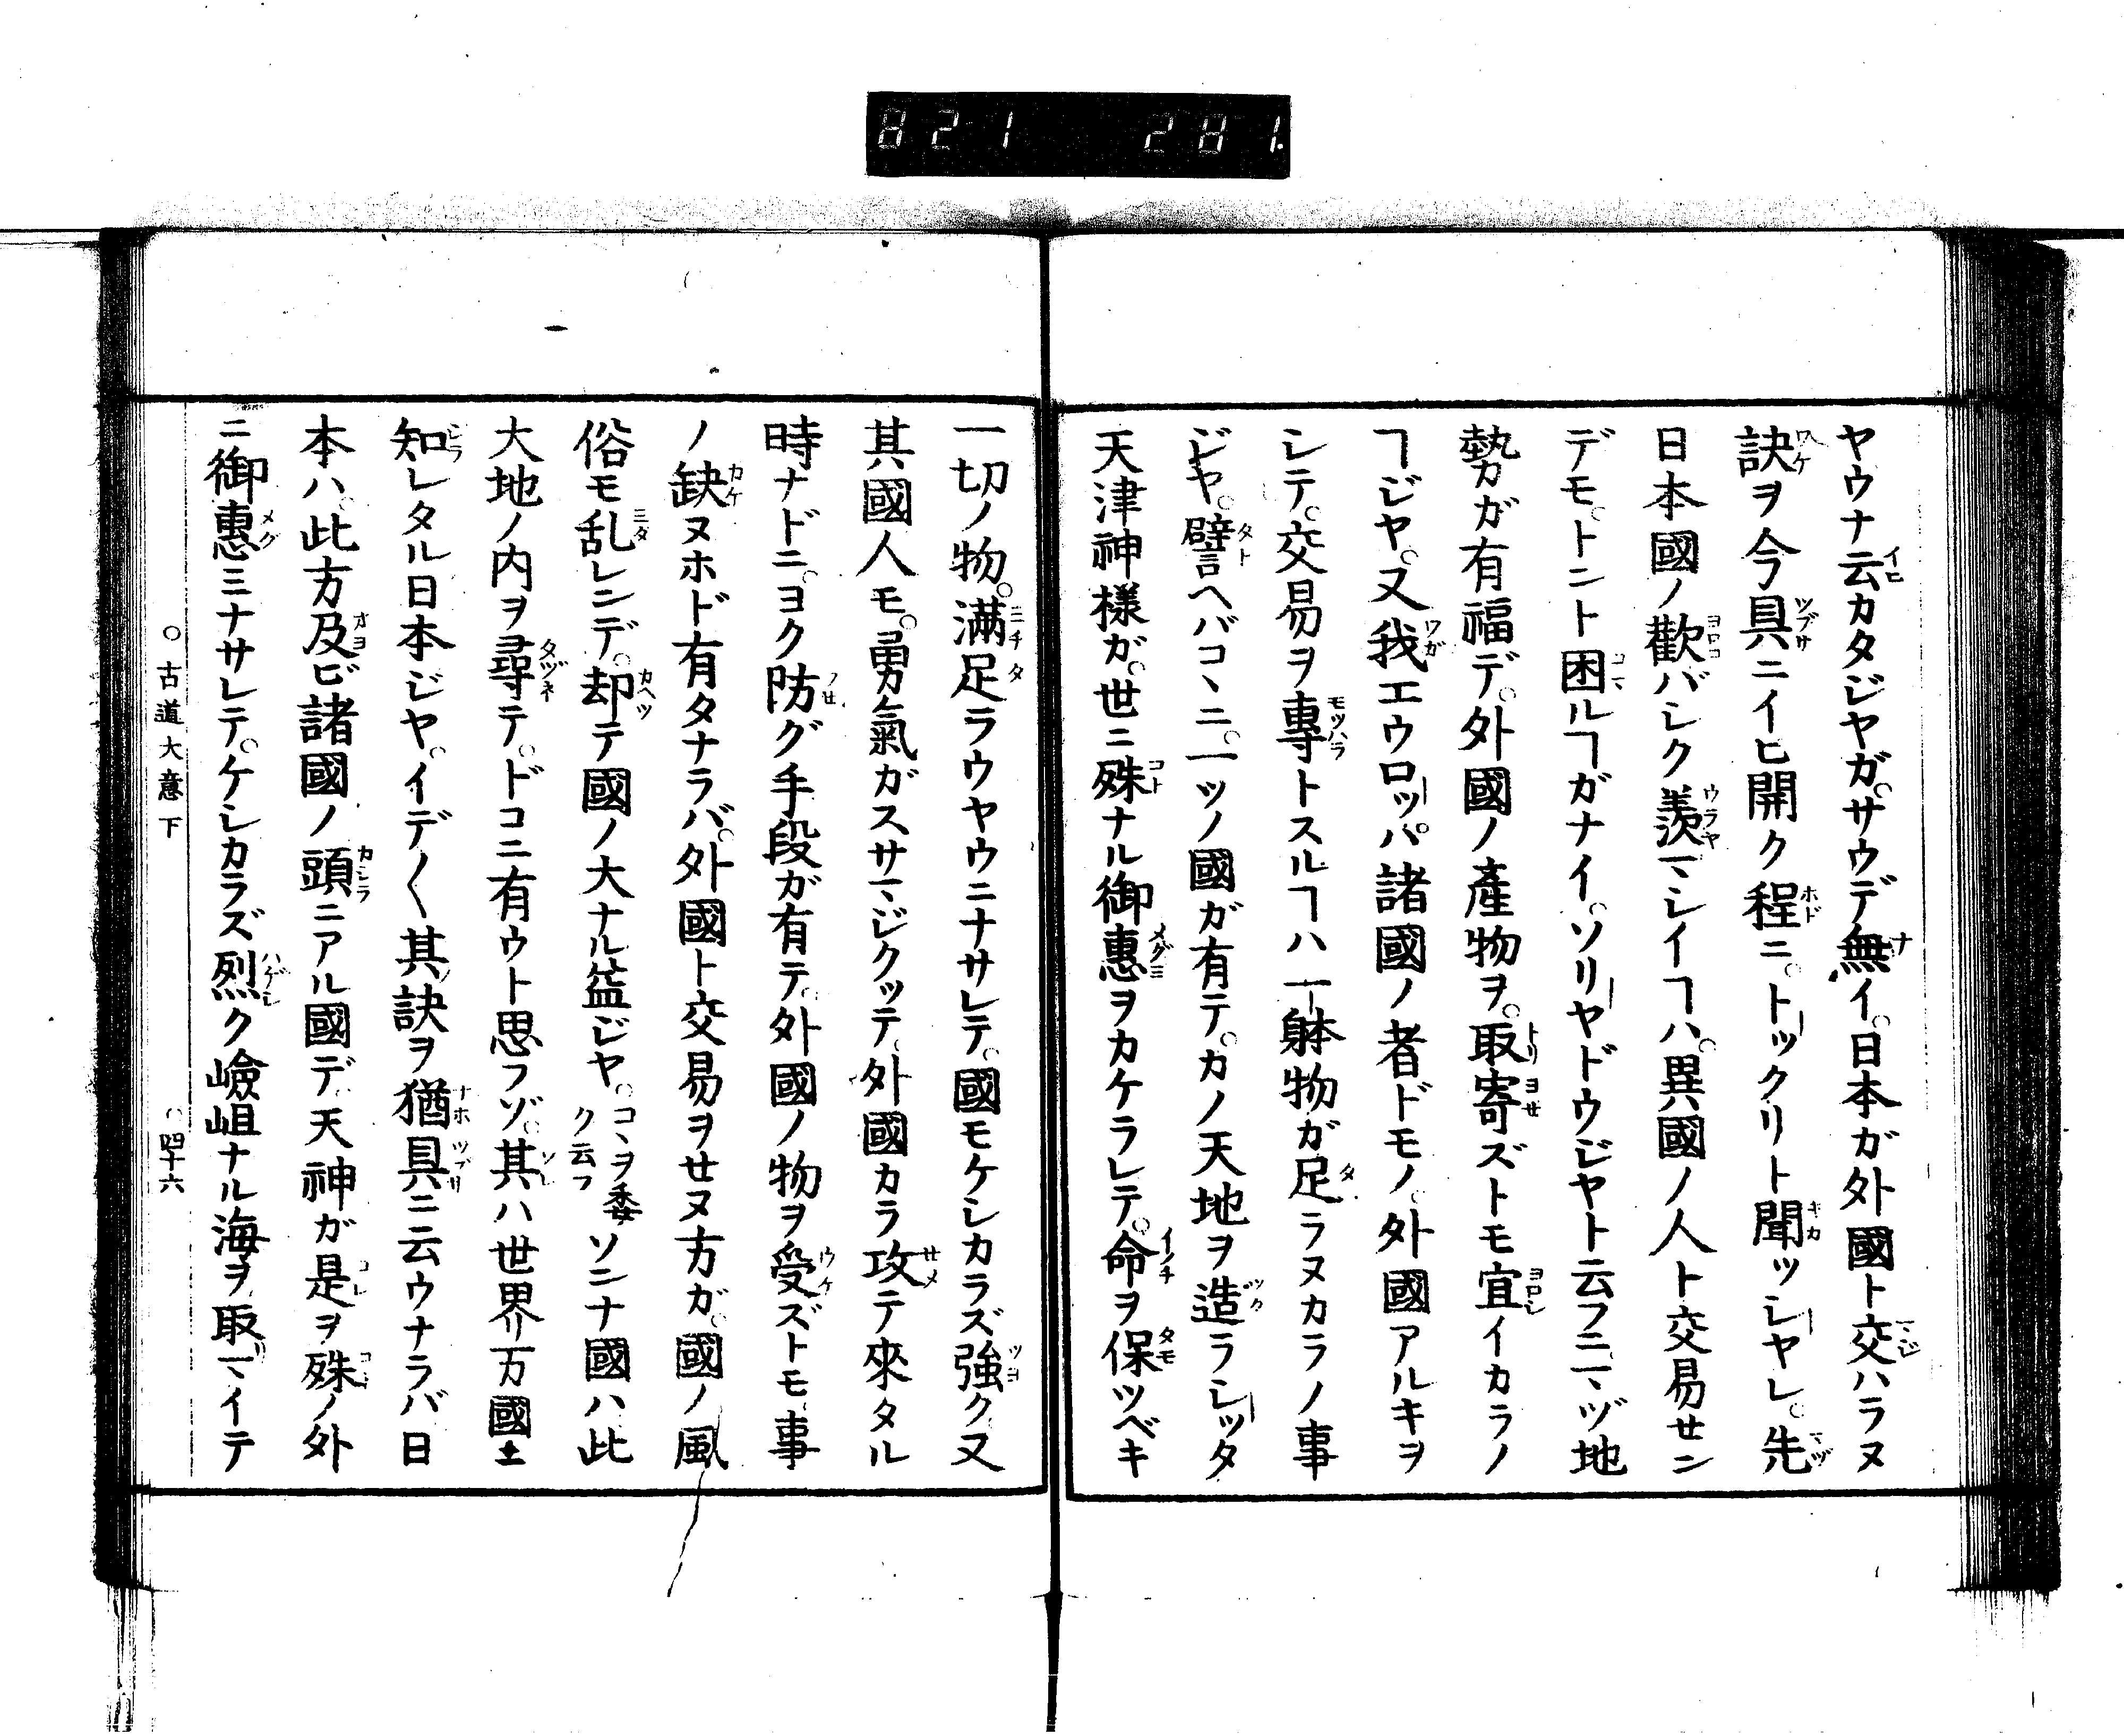 821 281.
ヤウナ云カタジヤガ。サウデ無イ。日本ガ外國ト交ハラヌ
訣ヲ今具ニイヒ開ク程ニ。トックリト聞ッシヤレ。先
日本國ノ歡バシク羨マシイヿハ。異國ノ人ト交易セン
デモ。トント困ルヿガナイ。ソリヤドウジヤト云フニマヅ地
勢ガ有福デ。外國ノ産物ヲ。取寄ズトモ宜イカラノ
ヿジヤ。又我エウロッパ諸國ノ者ドモノ。外國アルキヲ
シテ。交易ヲ專トスルヿハ一躰物ガ足ラヌカラノ事
ジヤ。譬ヘバコヽニ。一ツノ國ガ有テ。カノ天地ヲ造ラレッタ
天津神様ガ。世ニ殊ナル御惠ヲカケラレテ。命ヲ保ツベキ
一切ノ物。滿足ラウヤウニナサレテ。國モケシカラズ強ク又
其國人モ。勇氣ガスサマジクッテ。外國カラ攻テ來タル
時ナドニ。ヨク防グ手段ガ有テ。外國ノ物ヲ受ズトモ事
ノ缺ヌホド有タナラバ。外國ト交易ヲセヌ方ガ。國ノ風
俗モ乱レンデ。却テ國ノ大ナル益ジヤ。コヽヲ委ク云フソンナ國ハ此
大地ノ内ヲ尋テ。ドコニ有ウト思フゾ。其ハ世界万國土
知レタル日本ジヤ。イデ〳〵其訣ヲ猶具ニ云ウナラバ日
本ハ。此方及ビ諸國ノ頭ニアル國デ。天神ガ是ヲ殊ノ外
ニ御惠ミナサレテ。ケシカラズ烈ク嶮岨ナル海ヲ取マイテ
○古道大意下 ○四十六